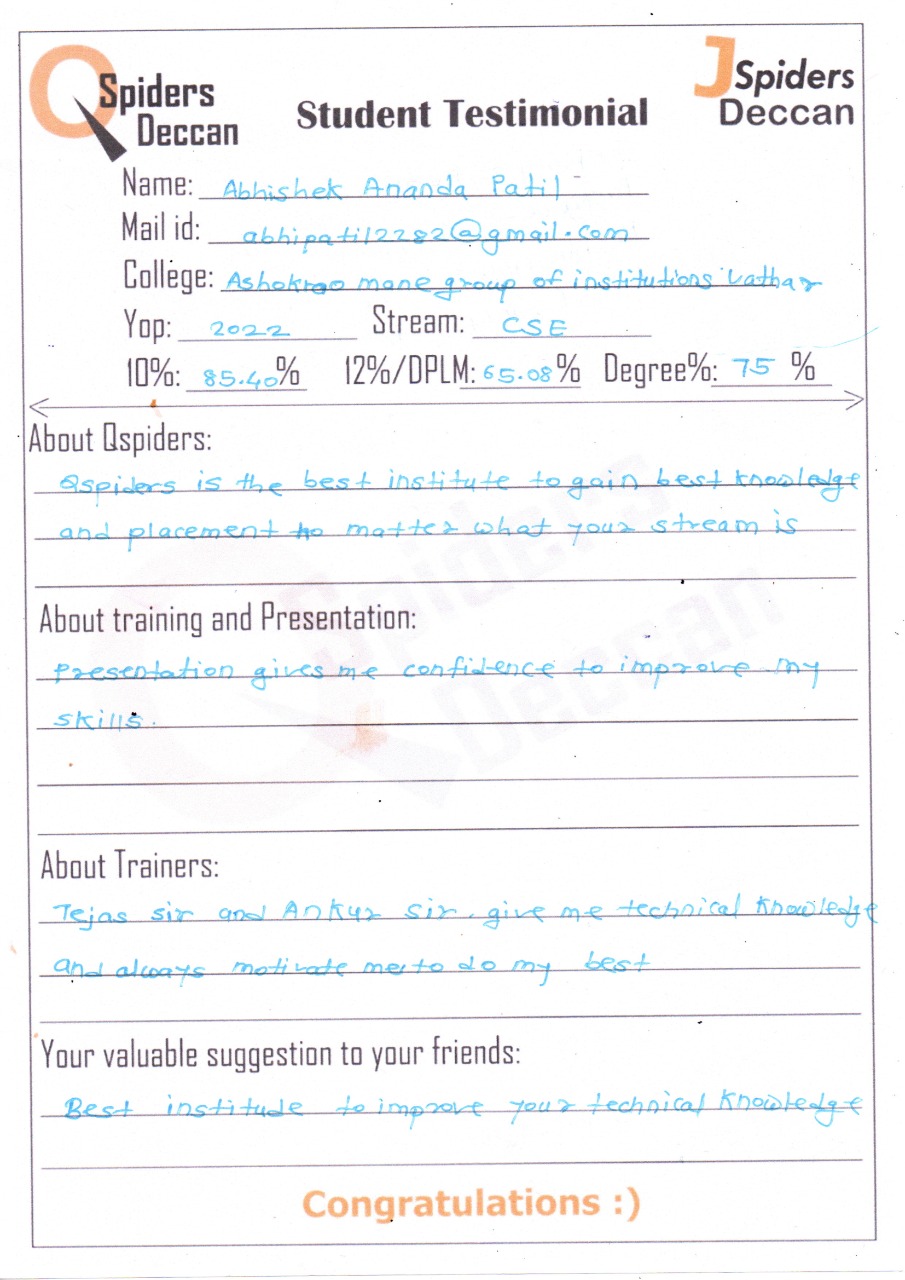 QSpiders Deccan
Student Testimonial
JSpiders Deccan
Name: Abhishek Ananda Patil
Mail id: abhipatil2282@gmail.com
College: Ashokrao mane group of institutions Vathar
Yop: 2022 Stream: CSE
10%: 85.40% 12%/DPLM: 65.08% Degree%: 75 %
About Qspiders:
Qspiders is the best institute to gain best knowledge
and placement no matter what your stream is
About training and Presentation:
Presentation gives me confidence to improve my
skills.
About Trainers:
Tejas sir and Ankur sir. give me technical knowledge
and always motivate me to do my best
Your valuable suggestion to your friends:
Best institude to improve your technical knowledge
Congratulations :)
Spiders
Deccan